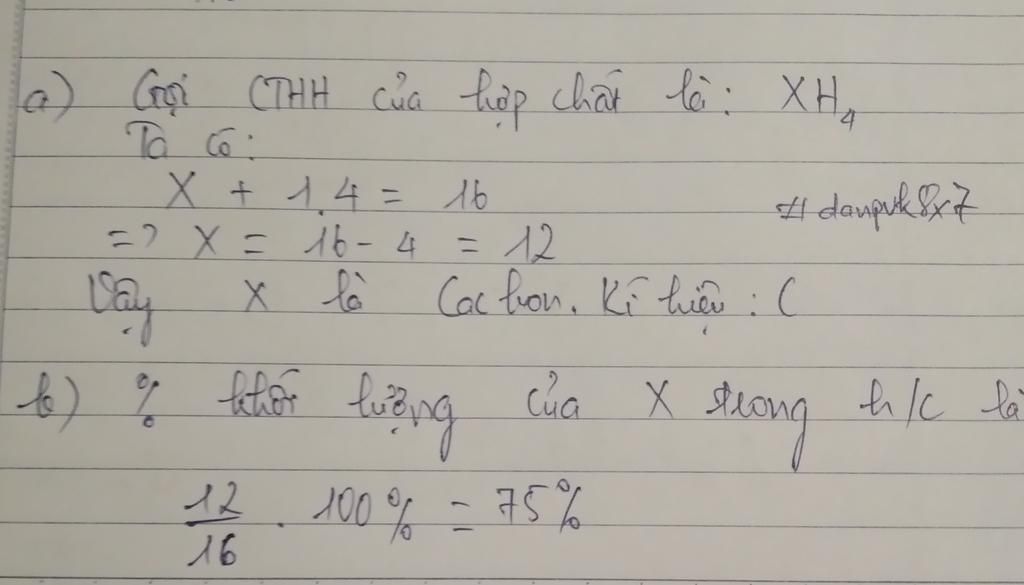 a) Gọi CTHH của hợp chất là: XH₄
Ta có:
X + 1.4 = 16
=> X = 16 - 4 = 12
# danpvk8x7
Vậy X là Cacbon. Kí hiệu: C
b) % khối lượng của X trong h/c là
12/16 . 100% = 75%